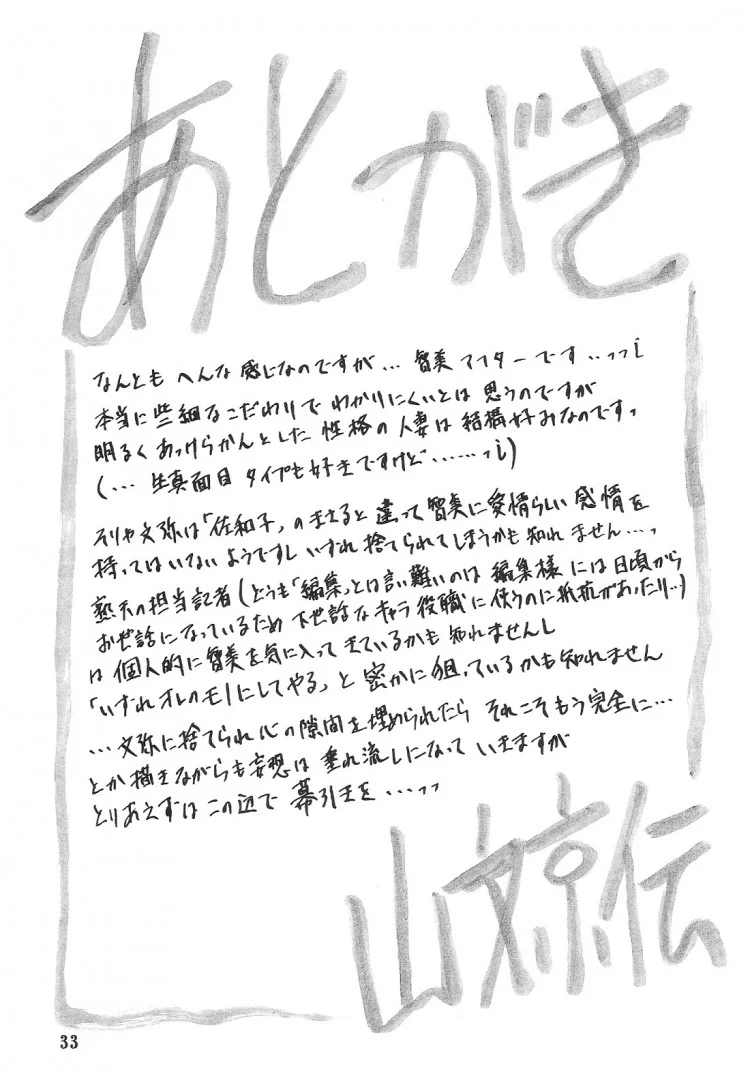 あとがき
なんとも へんな 感じなのですが… 智美 アフターです…っっ;
本当に些細なこだわりで わかりにくいとは 思うのですが
明るく あっけらかんとした 性格の 人妻は 結構好みなのですっ
(… 生真面目 タイプも好きですけど………っ;)
そりゃ文弥は「佐和子」のまさると 違って智美に愛情らしい 感情を
持ってはいないようですし いずれ 捨てられてしまうかも 知れません…っ
熟天の担当記者(どうも「編集」とは言い難いのは 編集様 には日頃から
お世話になっているため 下世話な キャラ 役職に 使うのに抵抗があったり…)
は 個人的に智美を気に入って きているかも 知れませんし
「いずれオレのモノにしてやる」と 密かに 狙っているかも知れません
… 文弥に捨てられ心の隙間を埋められたら それこそもう完全に…
とか描きながらも妄想は 垂れ流しになって いきますが
とりあえずは この辺で 幕引きを …っっ
山文京伝
33